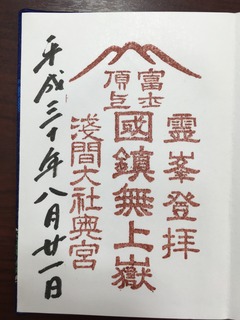 霊峯登拝
富士
頂上
國鎮無上嶽
淺間大社奥宮
平成三十年八月廿一日